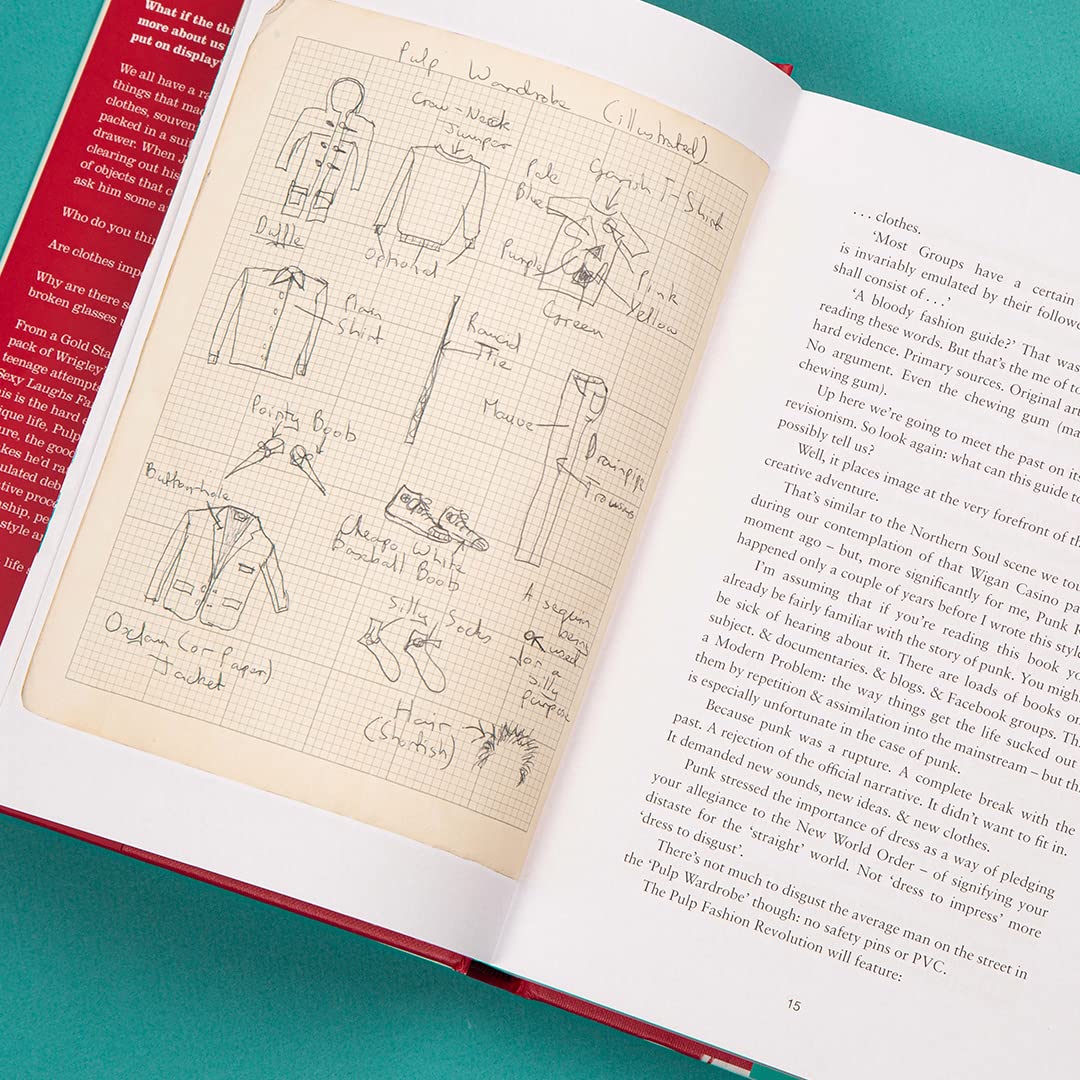 What if the thi
more about us
put on display
We all have a ra
things that mad
clothes, souven
packed in a sui
drawer. When J
clearing out his
of objects that c
ask him some a
Who do you thin
Are clothes imp
Why are there s
broken glasses
From a Gold Sta
pack of Wrigley'
teenage attempts
Sexy Laughs Fa
his is the hard e
ique life, Pulp
ure, the good
akes he'd ra
ulated deb
ative proc
nship, pe
style a
life s
Pulp Wardrobe (illustrated)
Crew-Neck
Jumper
Optional
Duffle
Garish T-Shirt
Pale
Blue
Purple
Pink
Yellow
Green
Plain
Shirt
Round
Tie
Mauve
Drainpipe
Trousers
Pointy Boob
Buttonhole
Cheapo White
Baseball Boob
Oxfam (or Paper)
Jacket
Silly Socks
A sequin
being
used
for a
silly
purpose
Hair
(Shortish)
. . . clothes.
'Most Groups have a certain
is invariably emulated by their followe
shall consist of . . .'
'A bloody fashion guide?' That was
reading these words. But that's the me of to
hard evidence. Primary sources. Original art
No argument. Even the chewing gum (ma
chewing gum).
Up here we're going to meet the past on its
revisionism. So look again: what can this guide to
possibly tell us?
Well, it places image at the very forefront of th
creative adventure.
That's similar to the Northern Soul scene we tou
during our contemplation of that Wigan Casino pa
moment ago – but, more significantly for me, Punk R
happened only a couple of years before I wrote this style
I'm assuming that if you're reading this book yo
already be fairly familiar with the story of punk. You might
be sick of hearing about it. There are loads of books on
subject. & documentaries. & blogs. & Facebook groups. Th
a Modern Problem: the way things get the life sucked out
them by repetition & assimilation into the mainstream – but th
is especially unfortunate in the case of punk.
Because punk was a rupture. A complete break with the
past. A rejection of the official narrative. It didn't want to fit in.
It demanded new sounds, new ideas. & new clothes.
Punk stressed the importance of dress as a way of pledging
your allegiance to the New World Order – of signifying your
distaste for the 'straight' world. Not 'dress to impress' more
'dress to disgust'.
There's not much to disgust the average man on the street in
the 'Pulp Wardrobe' though: no safety pins or PVC.
The Pulp Fashion Revolution will feature:
15